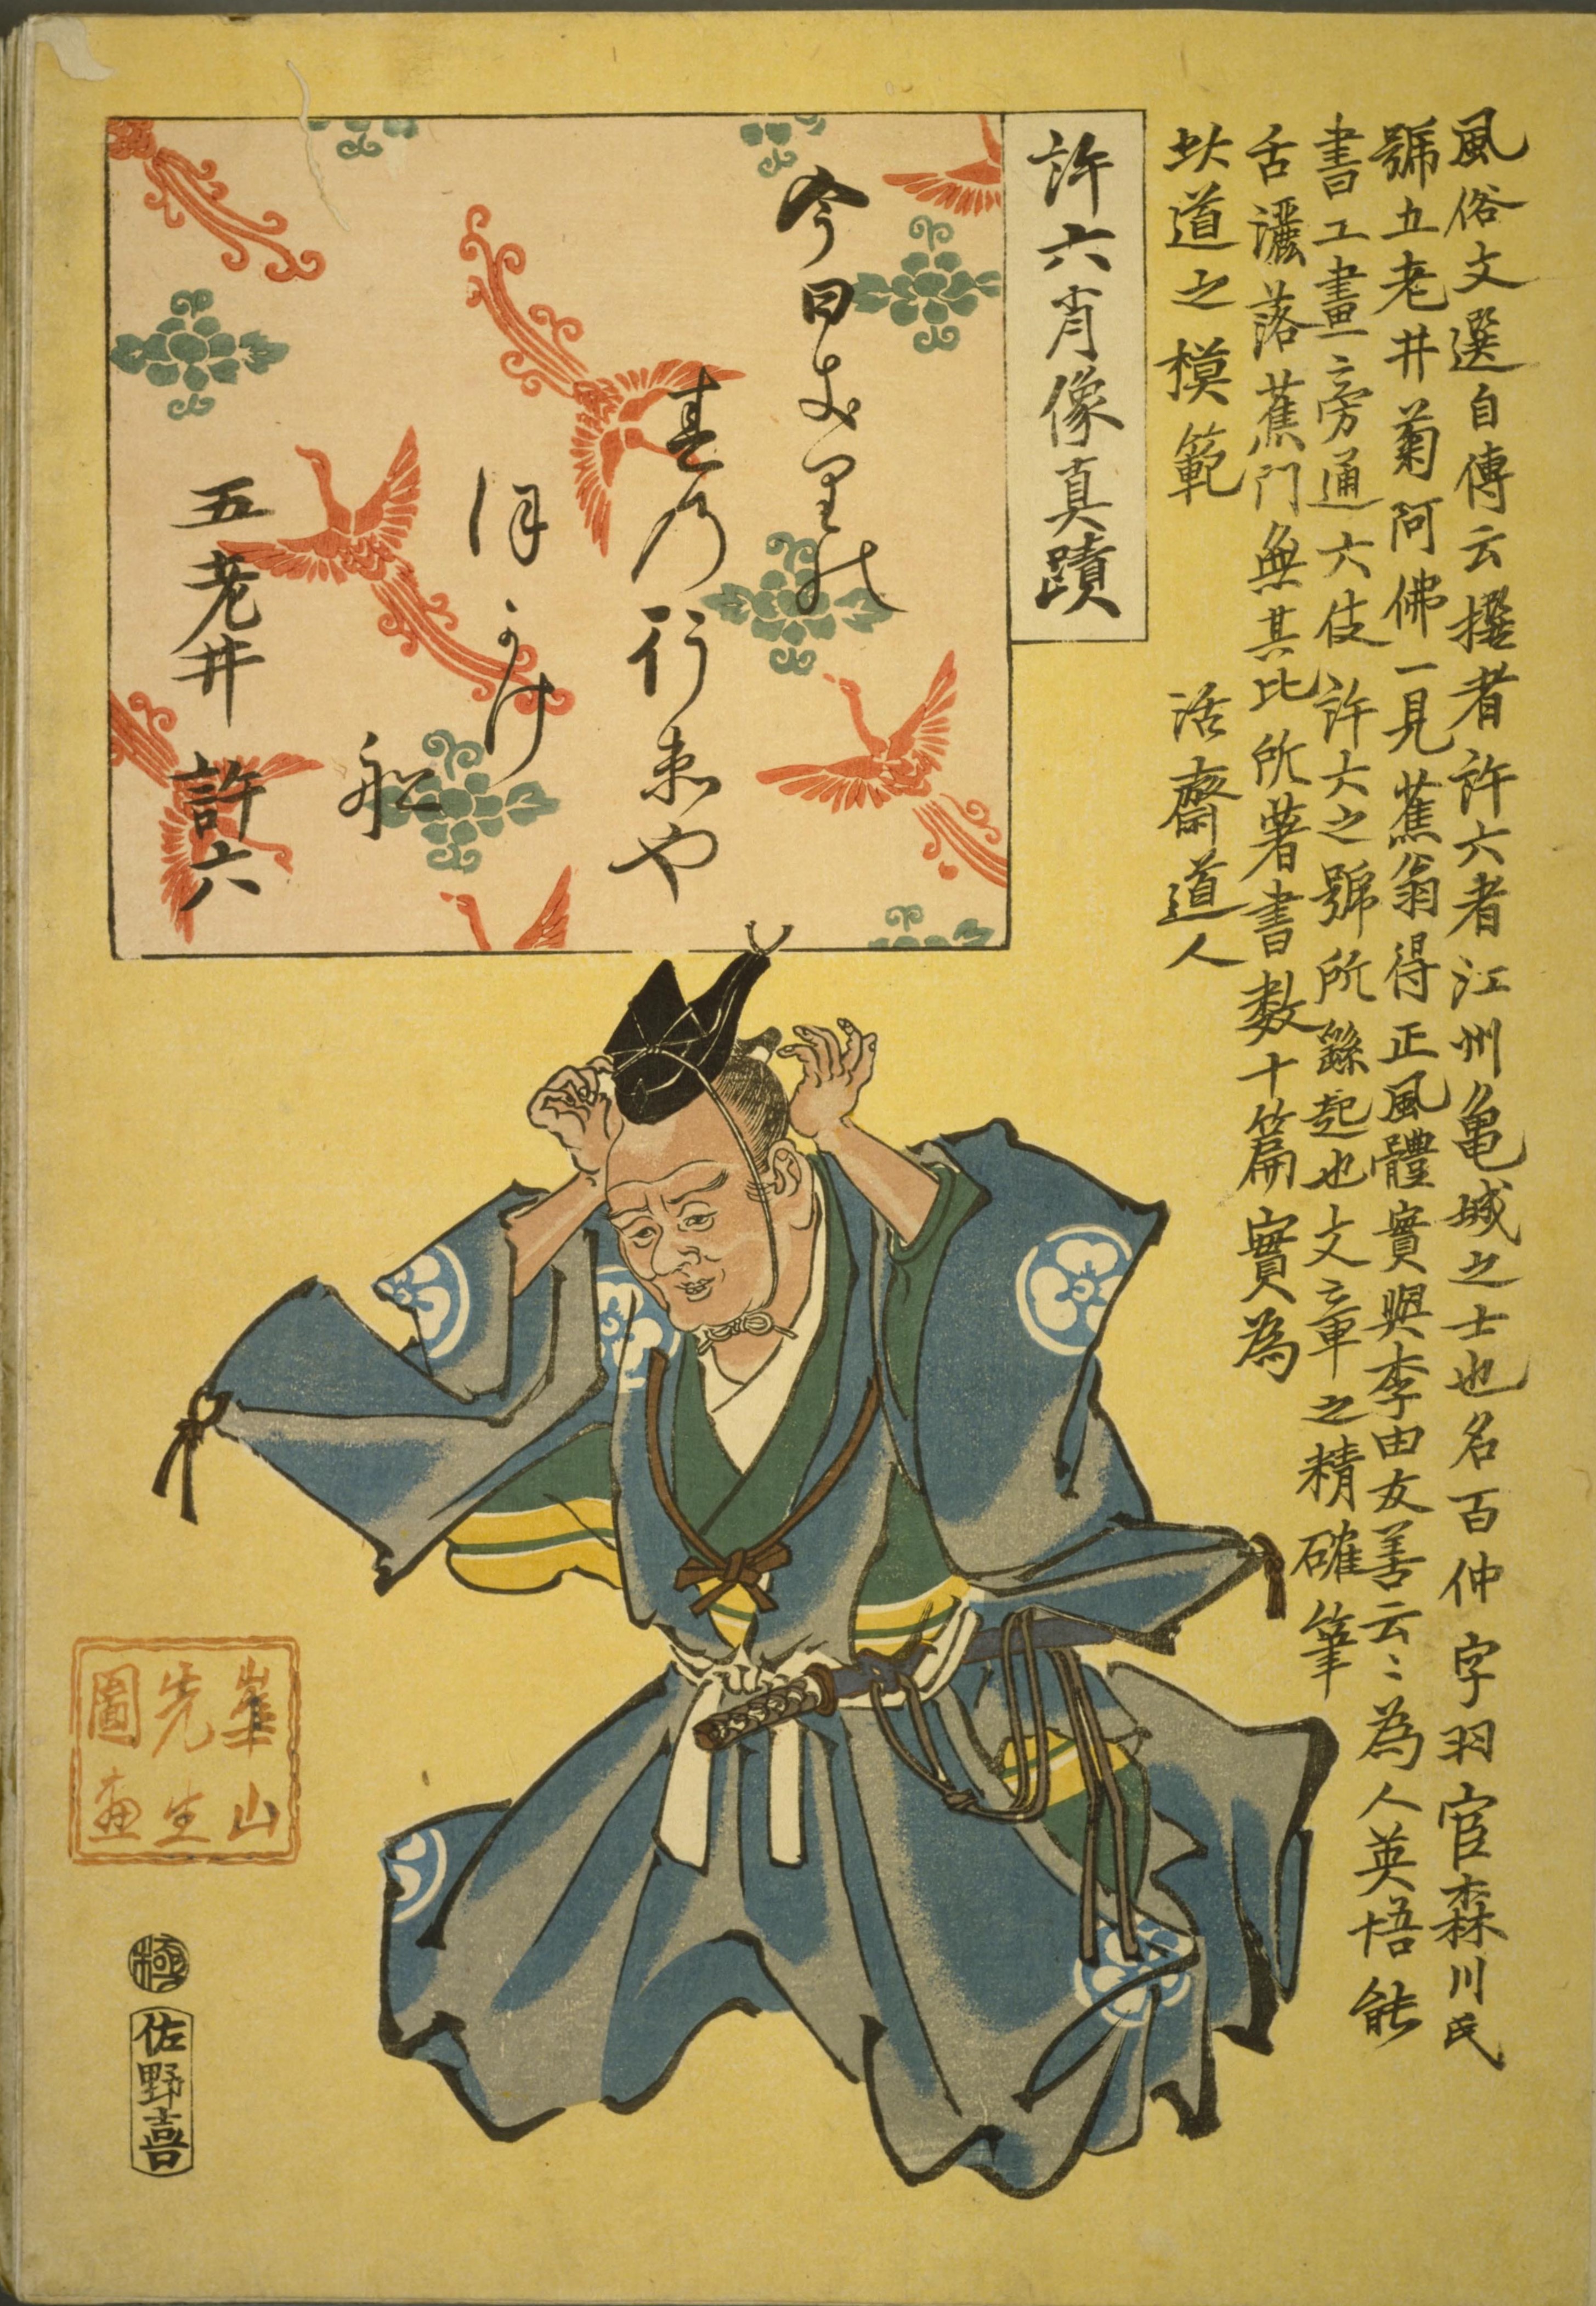 風俗文選自傳云撰者許六者江州亀城之士也名百仲字羽官森川氏
號五老井菊阿佛一見蕉翁得正風體實與李由友善云〻為人英悟能
書工畫旁通六伎許六之號所繇起也文章之精確筆
舌灑落蕉門無其比所著書数十篇實為
此道之模範 活齋道人
許六肖像真蹟
今日きりの
春乃行ゑや
ほかけ
船
五老井 許六
崋山
先生
圖画
極
佐野喜